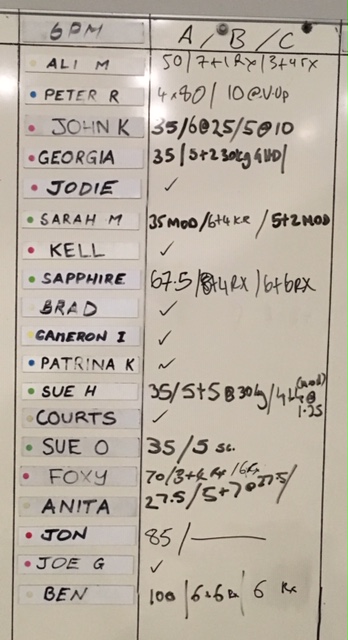 6PM A/B/C
ALI M 50/7+1RX/3+4RX
PETER R 4x80/10@V-Up
JOHN K 35/6@25/5@10
GEORGIA 35/5+2 30kg GHD/
JODIE ✓
SARAH M 35MOD/6+4 RX/5+2MOD
KELL ✓
SAPPHIRE 67.5/8+4RX/6+6RX
BRAD ✓
CAMERON I ✓
PATRINA K ✓
SUE H 35/5+5@30kg/4 (mod) @ 1.25
COURTS ✓
SUE O 35/5 sc.
FOXY 70/3+4 RX/6RX
ANITA 27.5/5+7@27.5/
JON 85/—
JOE G ✓
BEN 100/6+6 RX/6 RX